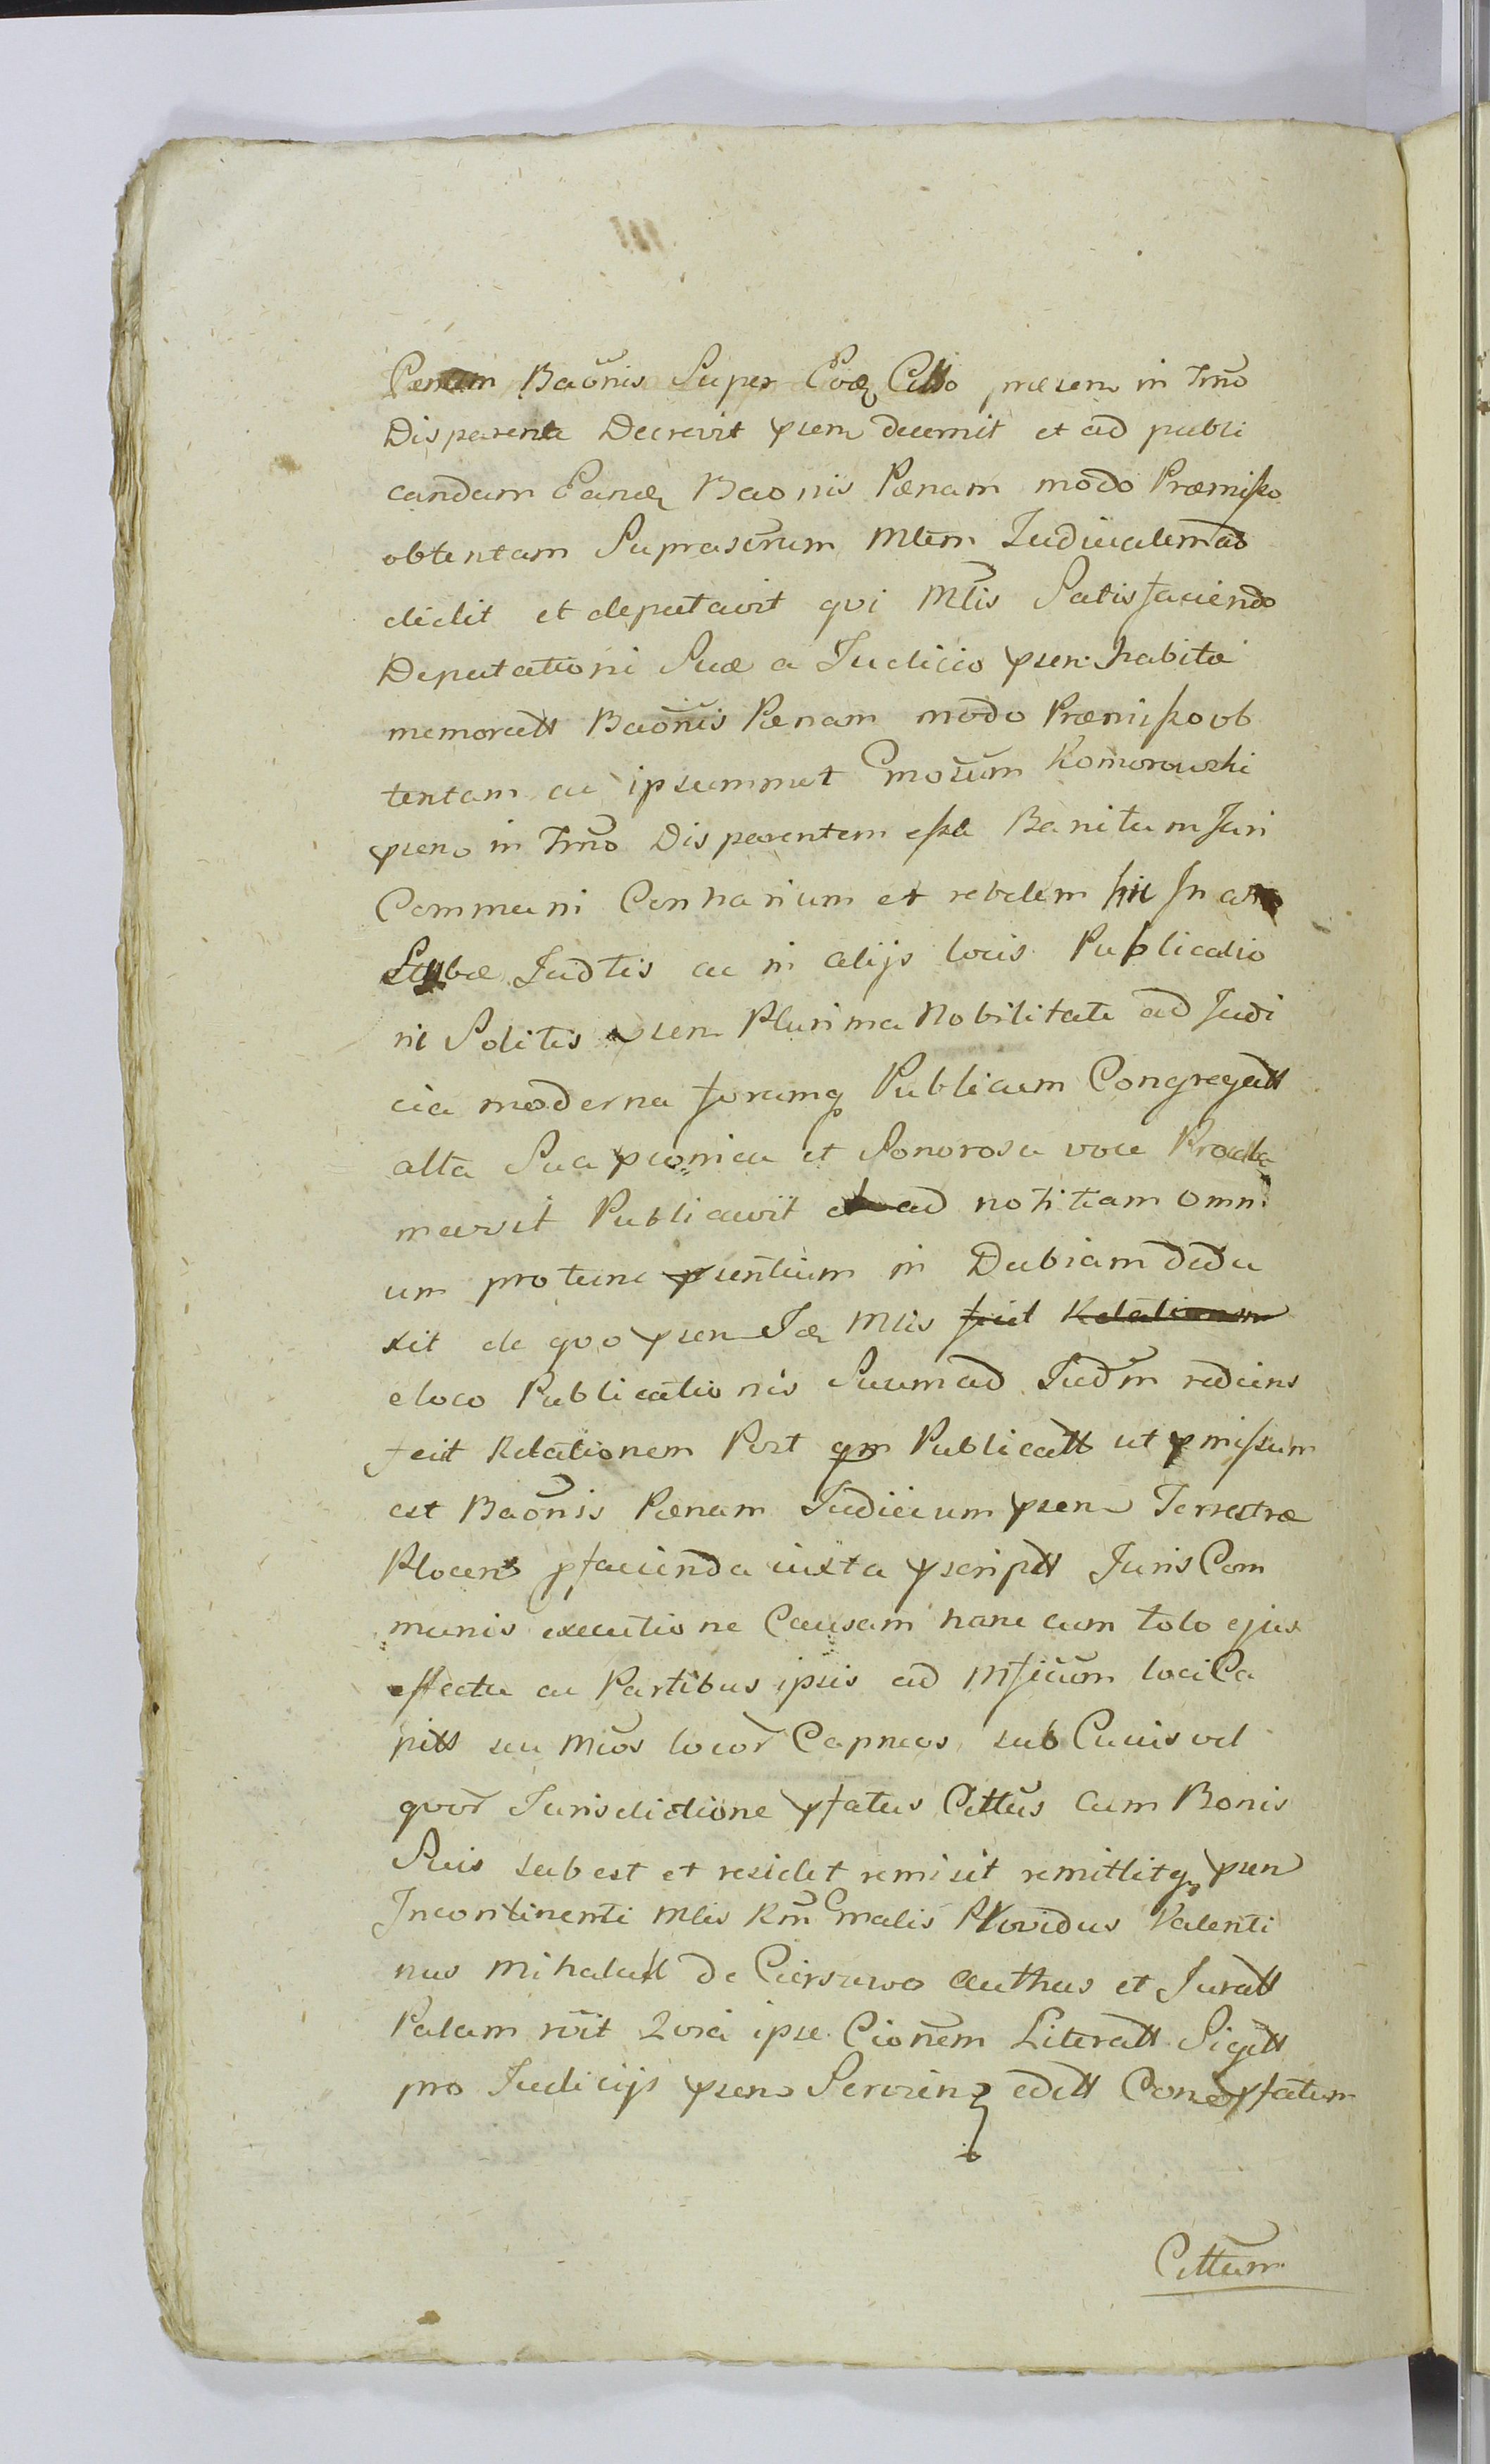 Penam Baōnis Super Eoq Citto præsen in Tmō
Disparente Decrevit psen decernit et ad publi
candam Eandē Baonis Pænam modo Præmißo
obtentam Suprascrum Mlem Judicialem ad
didit et deputavit qvi Mlis Satisfaciendo
Deputationi Suæ a Judicio psen habitæ
memoratt Baōnis Pænam modo Præmißo ob
tentam ac ipsummet Gnosum Komorowski
psen in Tmō Disparentem eße Banitum Juri
Communi Contrarium et rebelem hic in
Judtis ac in alijs locis Publicatio
ni Solitis psen Plurima Nobilitate ad Judi
cia moderna forumq Publicum Congregatt
alta Sua pconica et Sonorosa voce Procla
mavit Publicavit et ad notitiam omni
um protunc psentium in Dubiam dedu
xit de qvo psen Id Mlis fecit Relationem
eloco Publicationis Suum ad Judm rediens
fecit Relationem Post qm Publicatt ut pmißum
est Baōnis Pænam Judicium psen Terrestræ
Plocen pfacienda iuxta pscriptt Juris Com
munis executione Causam hanc cum toto ejus
effectu ac Partibus ipsis ad Mficum loci Ca
pitt seu Mcos locor Capneos sub Cuius vel
qvor Jurisdictione pfatus Cittus Cum Bonis
Suis subest et residet remisit remittitq psen
Incontinenti Mlis Rm Gnalis Providus Valenti
nus Mihalak de Ciersewo authus et Juratt
Palam rvit Qvia ipse Cionem Literatt Sigitt
pro Judicijs psen Servien editt Con pfatum
Cittum